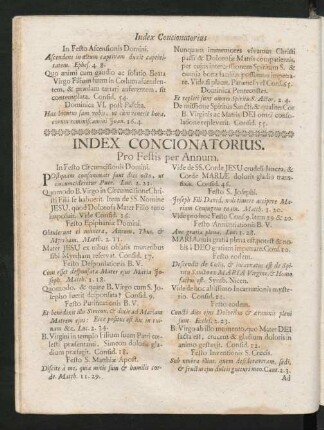 Index Concionatorius
In Festo Ascensionis Domini.
Ascendens in altum captivam duxit captivitatem. Ephes. 4. 8.
Quo animi cum gaudio ac solatio Beata
Virgo Filium suum in Cœlum ascendentem,
sit contemplata. Consid. 54.
Dominica VI. post Pascha.
Hæc locutus sum vobis, ut cum venerit hora,
Joan. 16. 4.
Nunquam immemores vivamus Christi
passi & Dolorosæ Matris
Dominica Pentecostes.
Et repleti sunt omnes Spiritu S. Actor. 2. 4.
De missione Spiritus Sancti, & quomodo
B. Virginis ac Matris DEI
Consid. 55.
INDEX CONCIONATORIUS.
Pro Festis per Annum.
In Festo Circumcisionis Domini.
Postquam consummati sunt dies octo, ut
circumcideretur Puer. Luc. 2. 21.
Quomodo B. Virgo in Circumcisione Christi
Filii se habuerit. Item de SS. Nomine
JESU, quod Dolorosa Mater Filio suo
imposuit. Vide Consid. 15.
Festo Epiphaniæ Domini.
Obtulerunt ei munera, Aurum, Thus, &
Myrrham. Matth. 2. 11.
Mater JESU ex tribus oblatis muneribus
sibi Myrrham reservat. Consid. 17.
Festo Desponsationis B. V.
Cum esset desponsata Mater ejus Maria
Joseph. Matth. 1. 18.
Quomodo, & quare B. Virgo cum S.
Josepho desponsata fuerit. Consid. 9.
Festo Purificationis B. V.
Et benedixit illis Simeon, & dixit ad Mariam
Matrem ejus: Ecce positus est hic in ruinam
&c. Luc. 2. 34.
B. Virgini in templo Filium suum Patri cœlesti
præsentanti, Simeon doloris gladium
præsagit. Consid. 18.
Festo S. Matthiæ Apost.
Discite à me, quia mitis sum & humilis corde
Matth. 11. 29.
Vide de SS. Corde JESU
Cordis MARIÆ doloris gladio
Consid. 46.
Festo S. Josephi.
Joseph Fili David, noli timere accipere Mariam
Conjugem tuam. Matth. 1. 20.
Vide pro hoc Festo Consid. 9. Item 19. & 20.
Festo Annuntiationis B. V.
Ave gratia plena. Luc. 1. 28.
MARIA
à DEO gratiam impetrans? Consid. 10.
Eodem Festo.
Descendit de Cœlis, & incarnatus est de Spiritu
S. ex MARIA Virgine, & Homo
factus est. Symb. Nicen.
Vide de hoc altissimo Incarnationis mysterio.
Consid. 11.
Festo eodem.
Cuncti dies ejus Doloribus & ærumnis pleni
sunt. Eccles. 2. 23.
B. Virgo ab illo momento, quo Mater DEI
facta est, & gladium doloris in
animo gestavit. Consid. 13.
Festo Inventionis S. Crucis.
Sub umbra illius, quem desideraveram, sedi,
& fructus ejus dulcis gutturi meo. Cant. 2. 3.
Ad